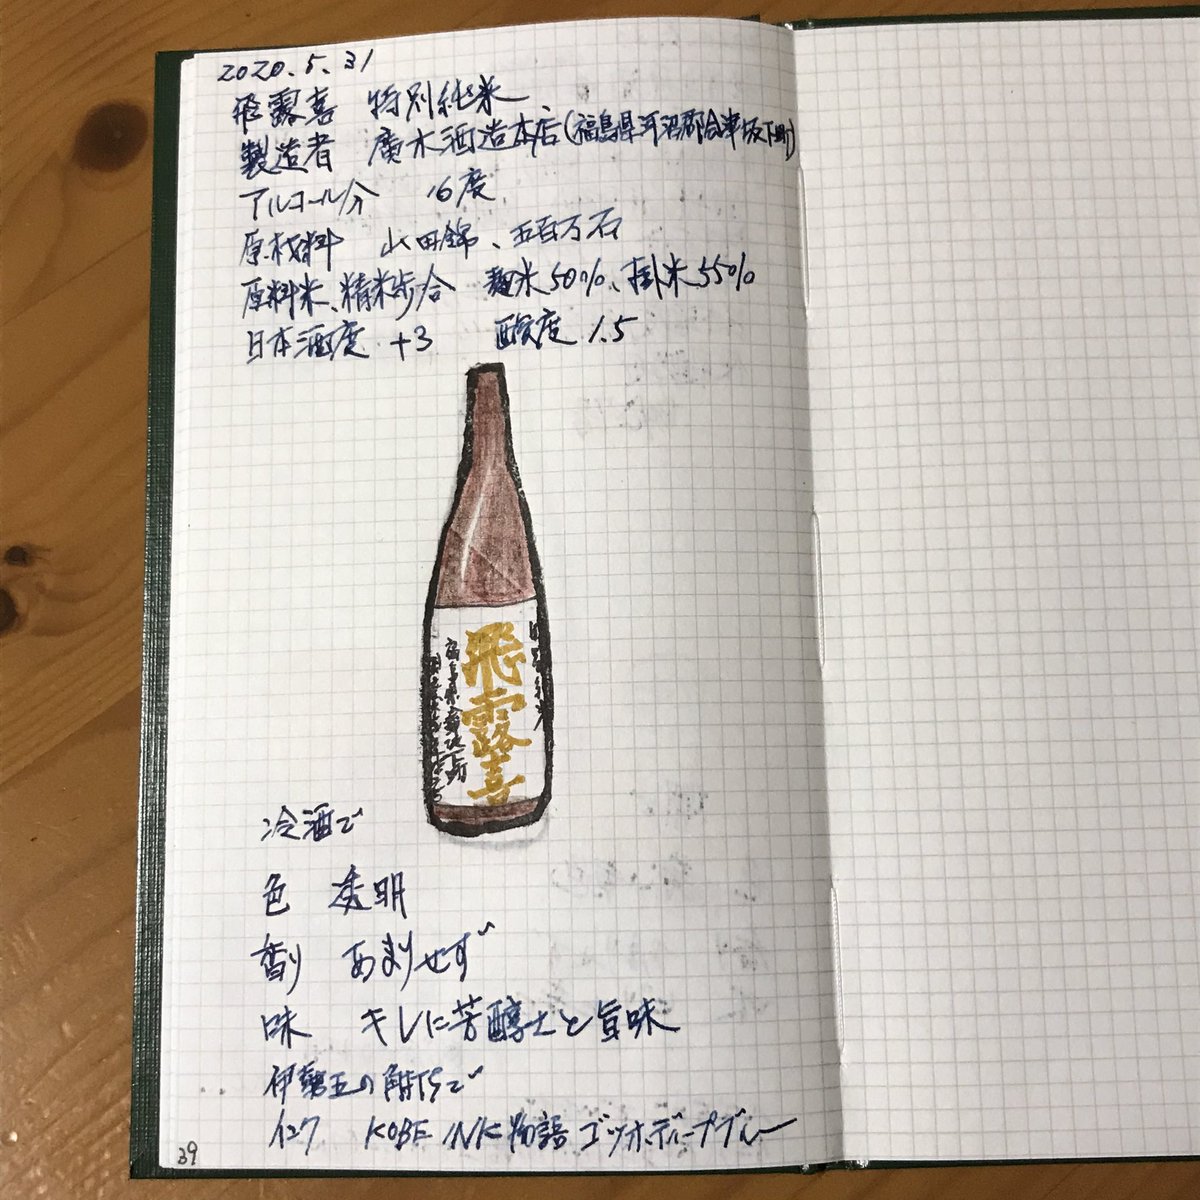 2020.5.31
飛露喜 特別純米
製造者 廣木酒造本店(福島県河沼郡会津坂下町)
アルコール分 16度
原材料 山田錦、五百万石
原料米、精米歩合 麹米50%、掛米55%
日本酒度 +3 酸度 1.5
飛露喜
冷酒で
色 透明
香り あまりせず
味 キレに芳醇さと旨味
伊勢五の角打ちで
インク KOBE INK物語 ゴッホディープブルー
39